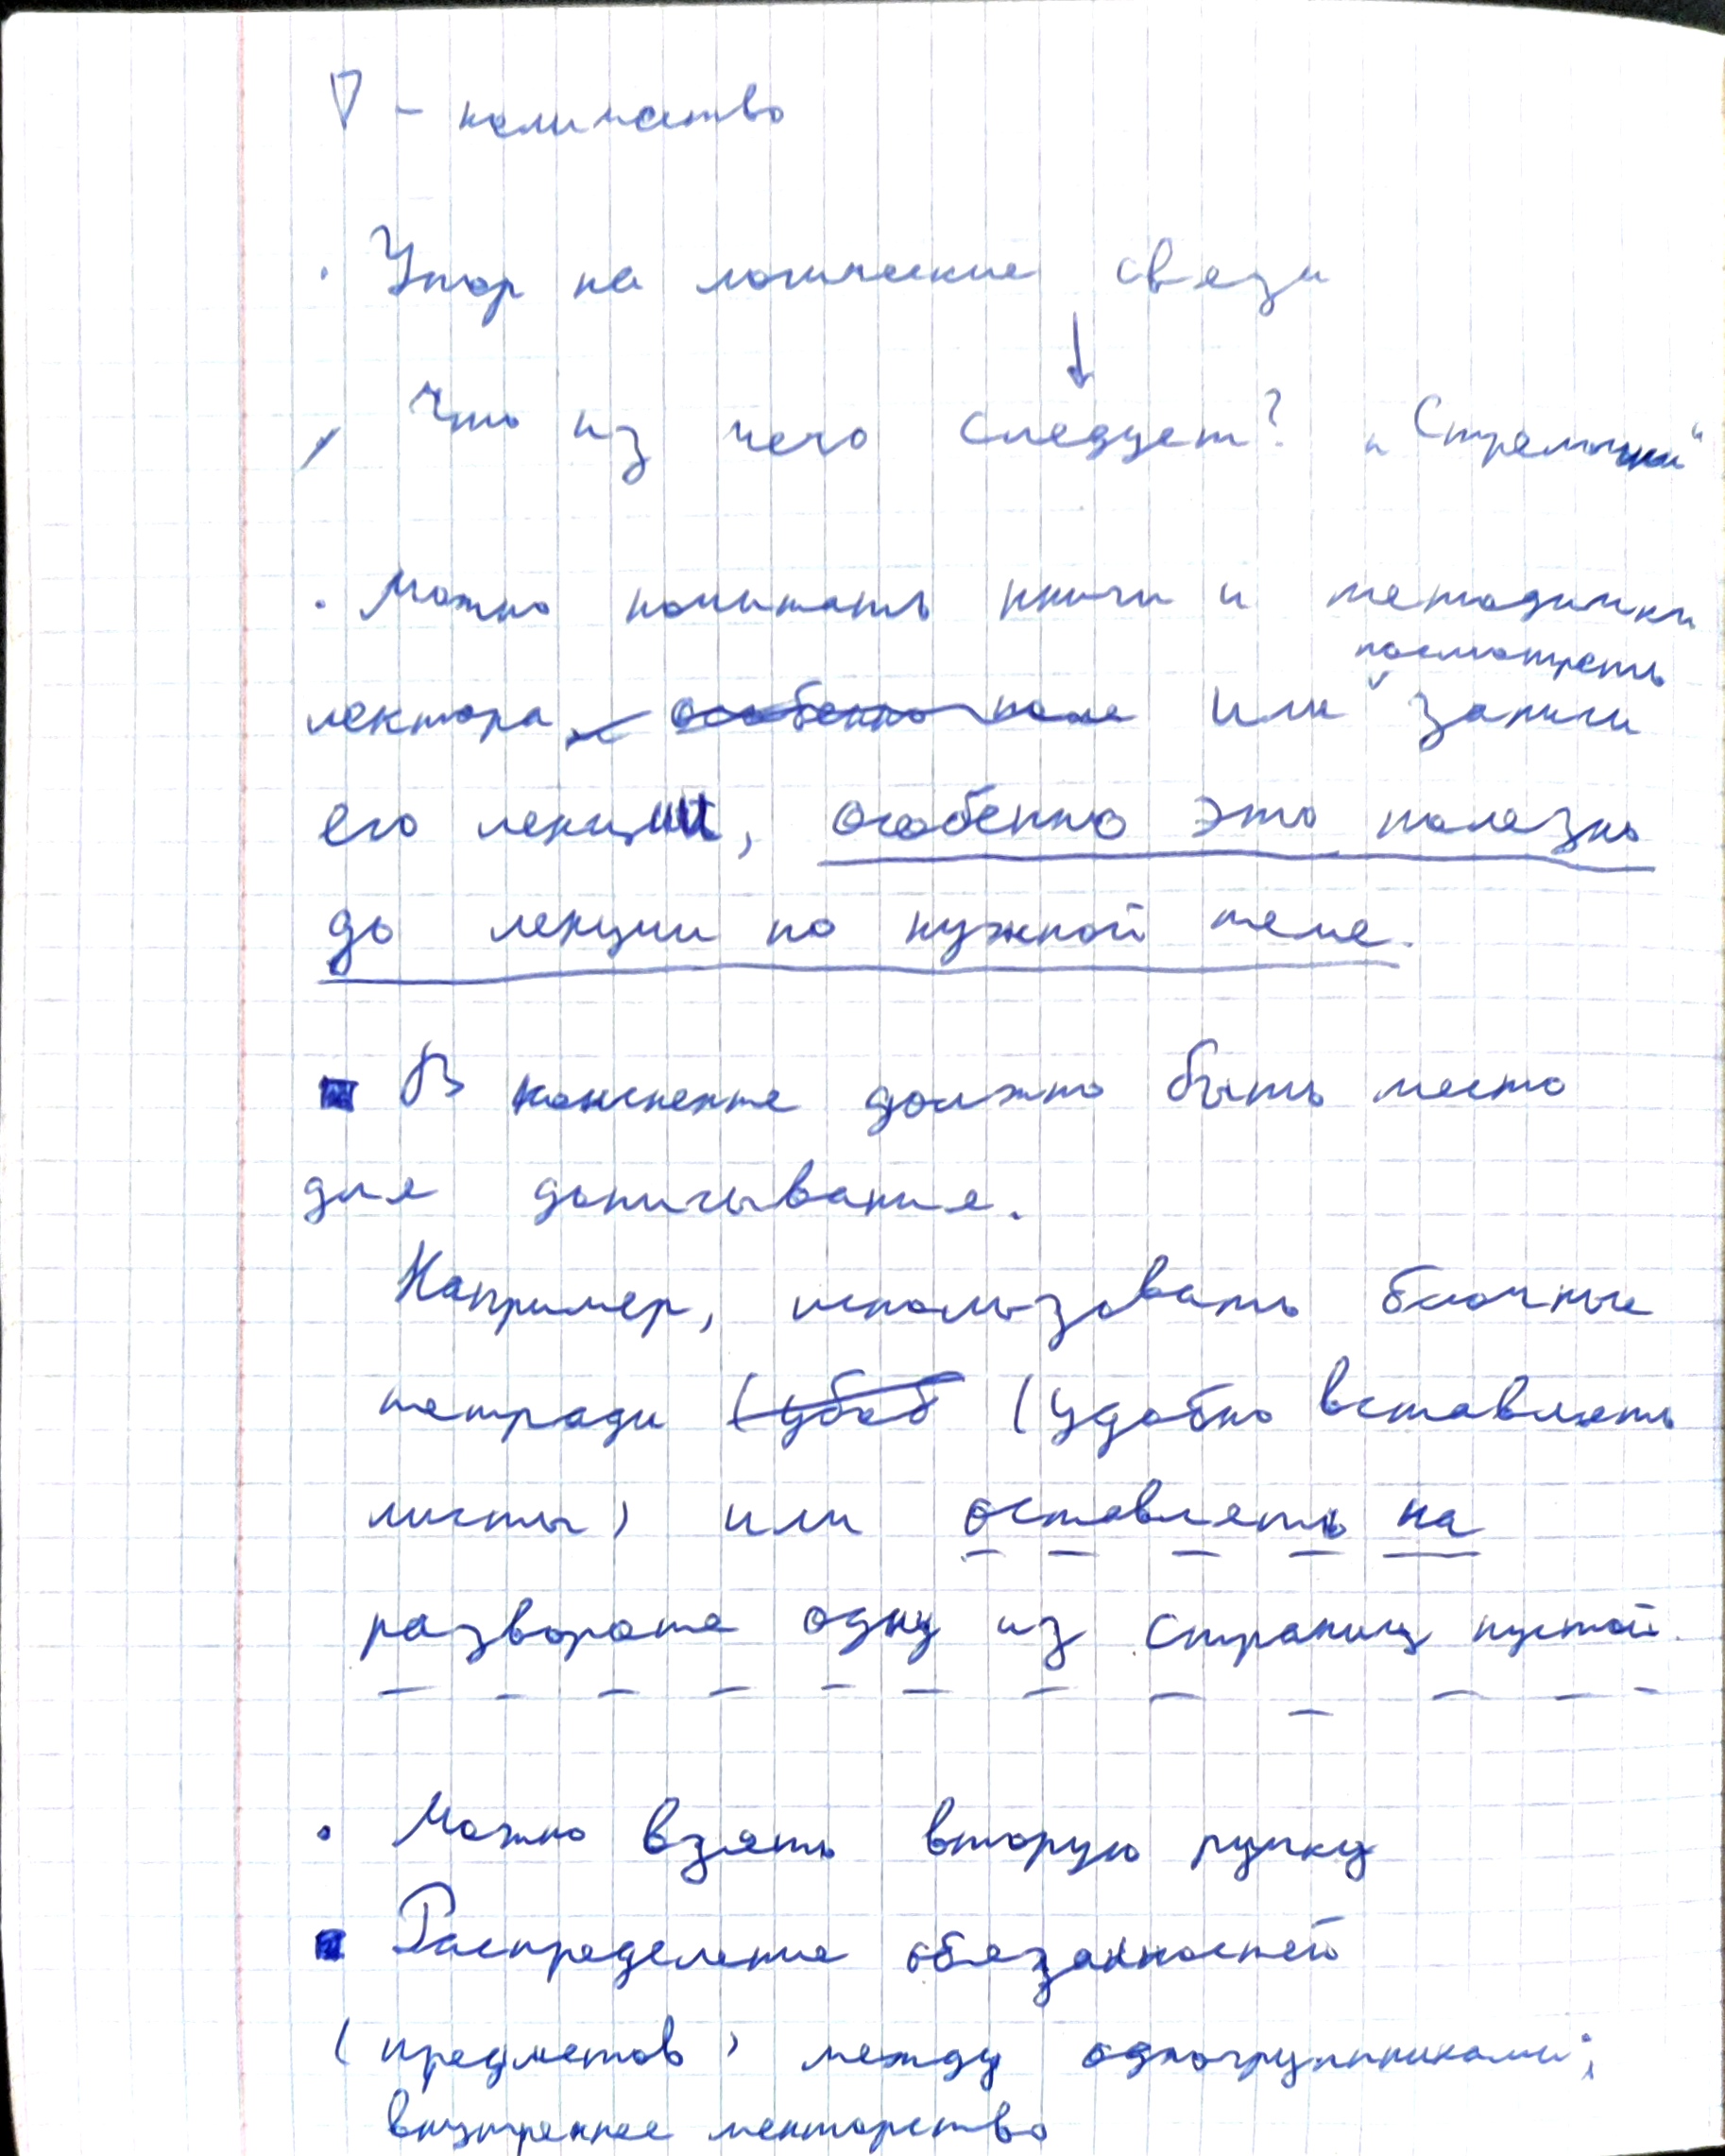 ∇ - количество
· Упор на логические связи
↓
Что из чего следует? „Стрелочки“
· Можно почитать книги и методички
посмотреть
лектора, особенно поле или записи
его лекций, особенно это полезно
до лекции по нужной теме.
▪ В конспекте должно быть место
для дописывания.
Например, использовать блочные
тетради (убоб (удобно вставлять
листы) или оставлять на
развороте одну из страниц пустой.
· Можно взять вторую ручку
▪ Распределение обязанностей
(предметов) между одногруппниками;
внутреннее менторство